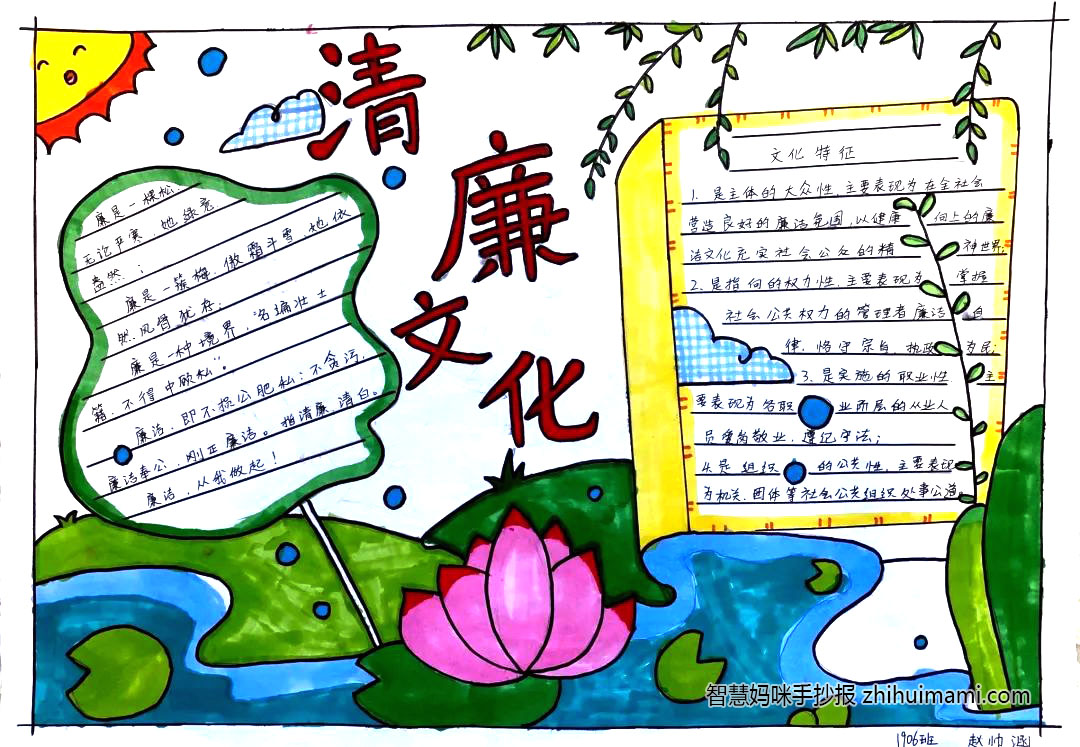 清
廉
文
化
廉是一棵松,
无论严寒,她绿意
盎然;
廉是一簇梅,傲霜斗雪,她依
然风骨犹存;
廉是一种境界,洛
箱,不得中欧私。
廉洁,即不损公肥私;不贪污,
廉洁奉公,刚正廉洁。指清廉,清白。
廉洁,从我做起!
文化特征
1.是主体的大众性,主要表现为在全社会
营造良好的廉洁氛围,以健康 向上的廉
洁文化充实社会公众的精 神世界;
2.是指向的权力性,主要表现为 掌握
社会公共权力的管理者廉洁 自
律,恪守宗旨,执政 为民;
3.是实施的职业性 主
要表现为各职 业而层的从业人
员爱岗敬业,遵纪守法;
4.是组织 的公共性,主要表现
为机关、团体等社会公共组织处事公道。
智慧妈咪手抄报 zhihuimami.com
1906班 赵帅涵